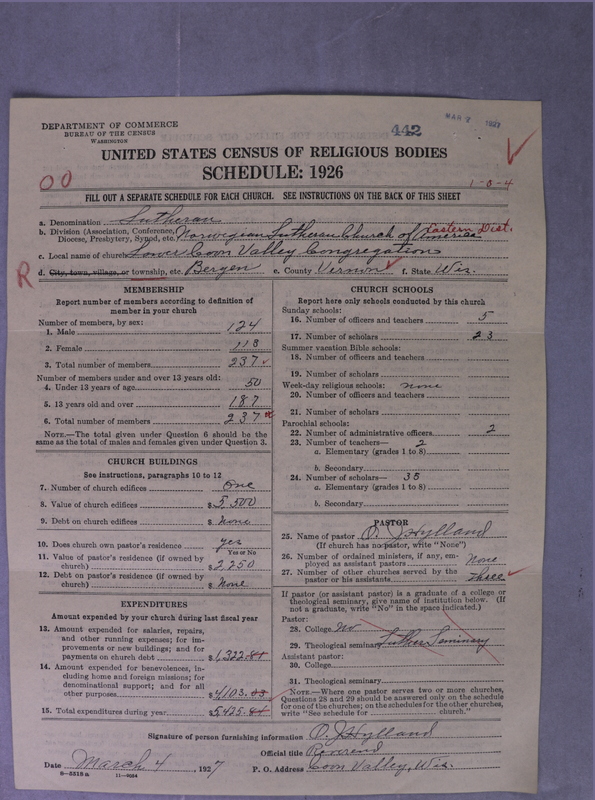 DEPARTMENT OF COMMERCE
BUREAU OF THE CENSUS
WASHINGTON
442
MAR 7 1927
UNITED STATES CENSUS OF RELIGIOUS BODIES
SCHEDULE: 1926
00
1-8-4
FILL OUT A SEPARATE SCHEDULE FOR EACH CHURCH. SEE INSTRUCTIONS ON THE BACK OF THIS SHEET
a. Denomination Lutheran
b. Division (Association, Conference, Diocese, Presbytery, Synod, etc. Norwegian Lutheran Church of America Eastern Dist.
c. Local name of church Lower Coon Valley Congregation
R
d. City, town, village, or township, etc. Bergen e. County Vernon f. State Wis.
MEMBERSHIP
Report number of members according to definition of
member in your church
Number of members, by sex:
1. Male 124
2. Female 113
3. Total number of members 237
Number of members under and over 13 years old:
4. Under 13 years of age 50
5. 13 years old and over 187
6. Total number of members 237
NOTE.—The total given under Question 6 should be the
same as the total of males and females given under Question 3.
CHURCH BUILDINGS
See instructions, paragraphs 10 to 12
7. Number of church edifices One
8. Value of church edifices $ 5,500
9. Debt on church edifices $ None
10. Does church own pastor's residence yes
Yes or No
11. Value of pastor's residence (if owned by
church) $ 2,250
12. Debt on pastor's residence (if owned by
church) $ None
EXPENDITURES
Amount expended by your church during last fiscal year
13. Amount expended for salaries, repairs,
and other running expenses; for im-
provements or new buildings; and for
payments on church debt $ 1,322.81
14. Amount expended for benevolences, in-
cluding home and foreign missions; for
denominational support; and for all
other purposes $ 4103.03
15. Total expenditures during year $ 5425.84
CHURCH SCHOOLS
Report here only schools conducted by this church
Sunday schools:
16. Number of officers and teachers 5
17. Number of scholars 23
Summer vacation Bible schools:
18. Number of officers and teachers
19. Number of scholars
Week-day religious schools: none
20. Number of officers and teachers
21. Number of scholars
Parochial schools:
22. Number of administrative officers 2
23. Number of teachers— 2
a. Elementary (grades 1 to 8)
b. Secondary
24. Number of scholars— 35
a. Elementary (grades 1 to 8)
b. Secondary
PASTOR
25. Name of pastor O. J. Hylland
(If church has no pastor, write "None")
26. Number of ordained ministers, if any, em-
ployed as assistant pastors None
27. Number of other churches served by the
pastor or his assistants three
If pastor (or assistant pastor) is a graduate of a college or
theological seminary, give name of institution below. (If
not a graduate, write "No" in the space indicated.)
Pastor:
28. College No
29. Theological seminary Luther Seminary
Assistant pastor:
30. College
31. Theological seminary
NOTE.—Where one pastor serves two or more churches,
Questions 28 and 29 should be answered only on the schedule
for one of the churches; on the schedules for the other churches,
write "See schedule for church."
Signature of person furnishing information O. J. Hylland
Official title Reverend
Date March 4, 1927 P. O. Address Coon Valley, Wis.
8—5518a 11—9034